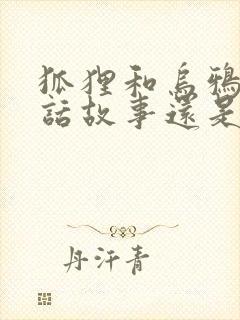 狐狸和烏鴉
話故事還是
丹汗青